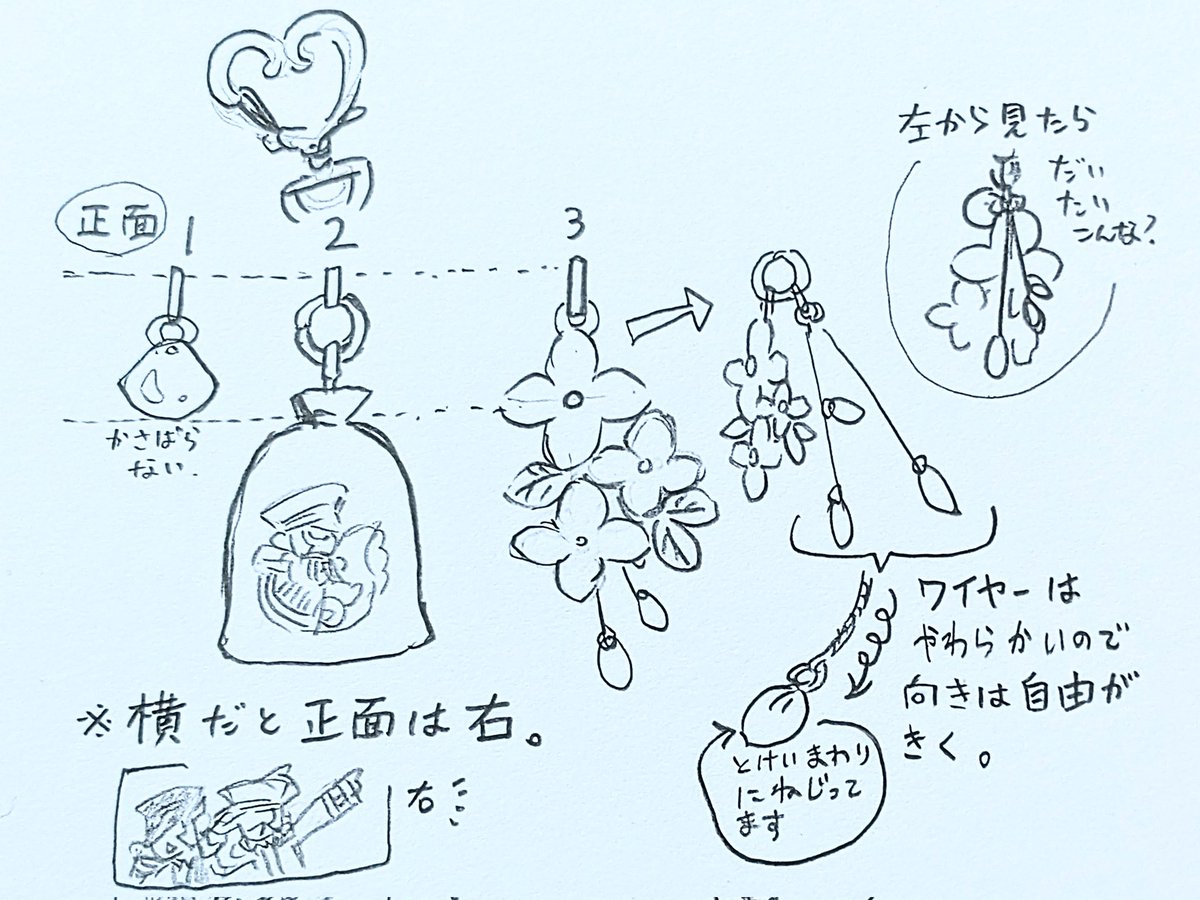 正面
1
2
3
かさばら
ない.
左から見たら
だい
たい
こんな?
ワイヤーは
やわらかいので
向きは自由が
きく。
とけいまわり
にねじって
ます
※横だと正面は右。
右